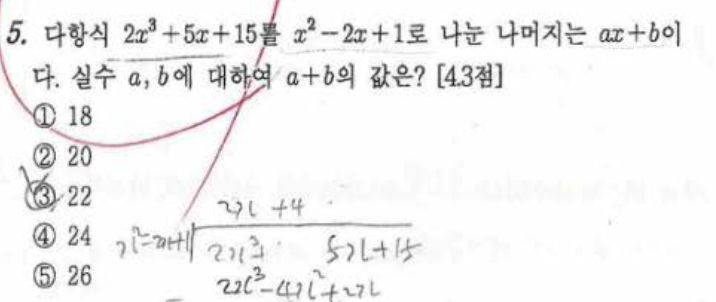 5. 다항식 2x³+5x+15를 x²-2x+1로 나눈 나머지는 ax+b이
다. 실수 a, b에 대하여 a+b의 값은? [4.3점]
① 18
② 20
③ 22
2x +4
④ 24
x²-2x+1 2x³+ 5x+15
⑤ 26
2x³-4x²+2x